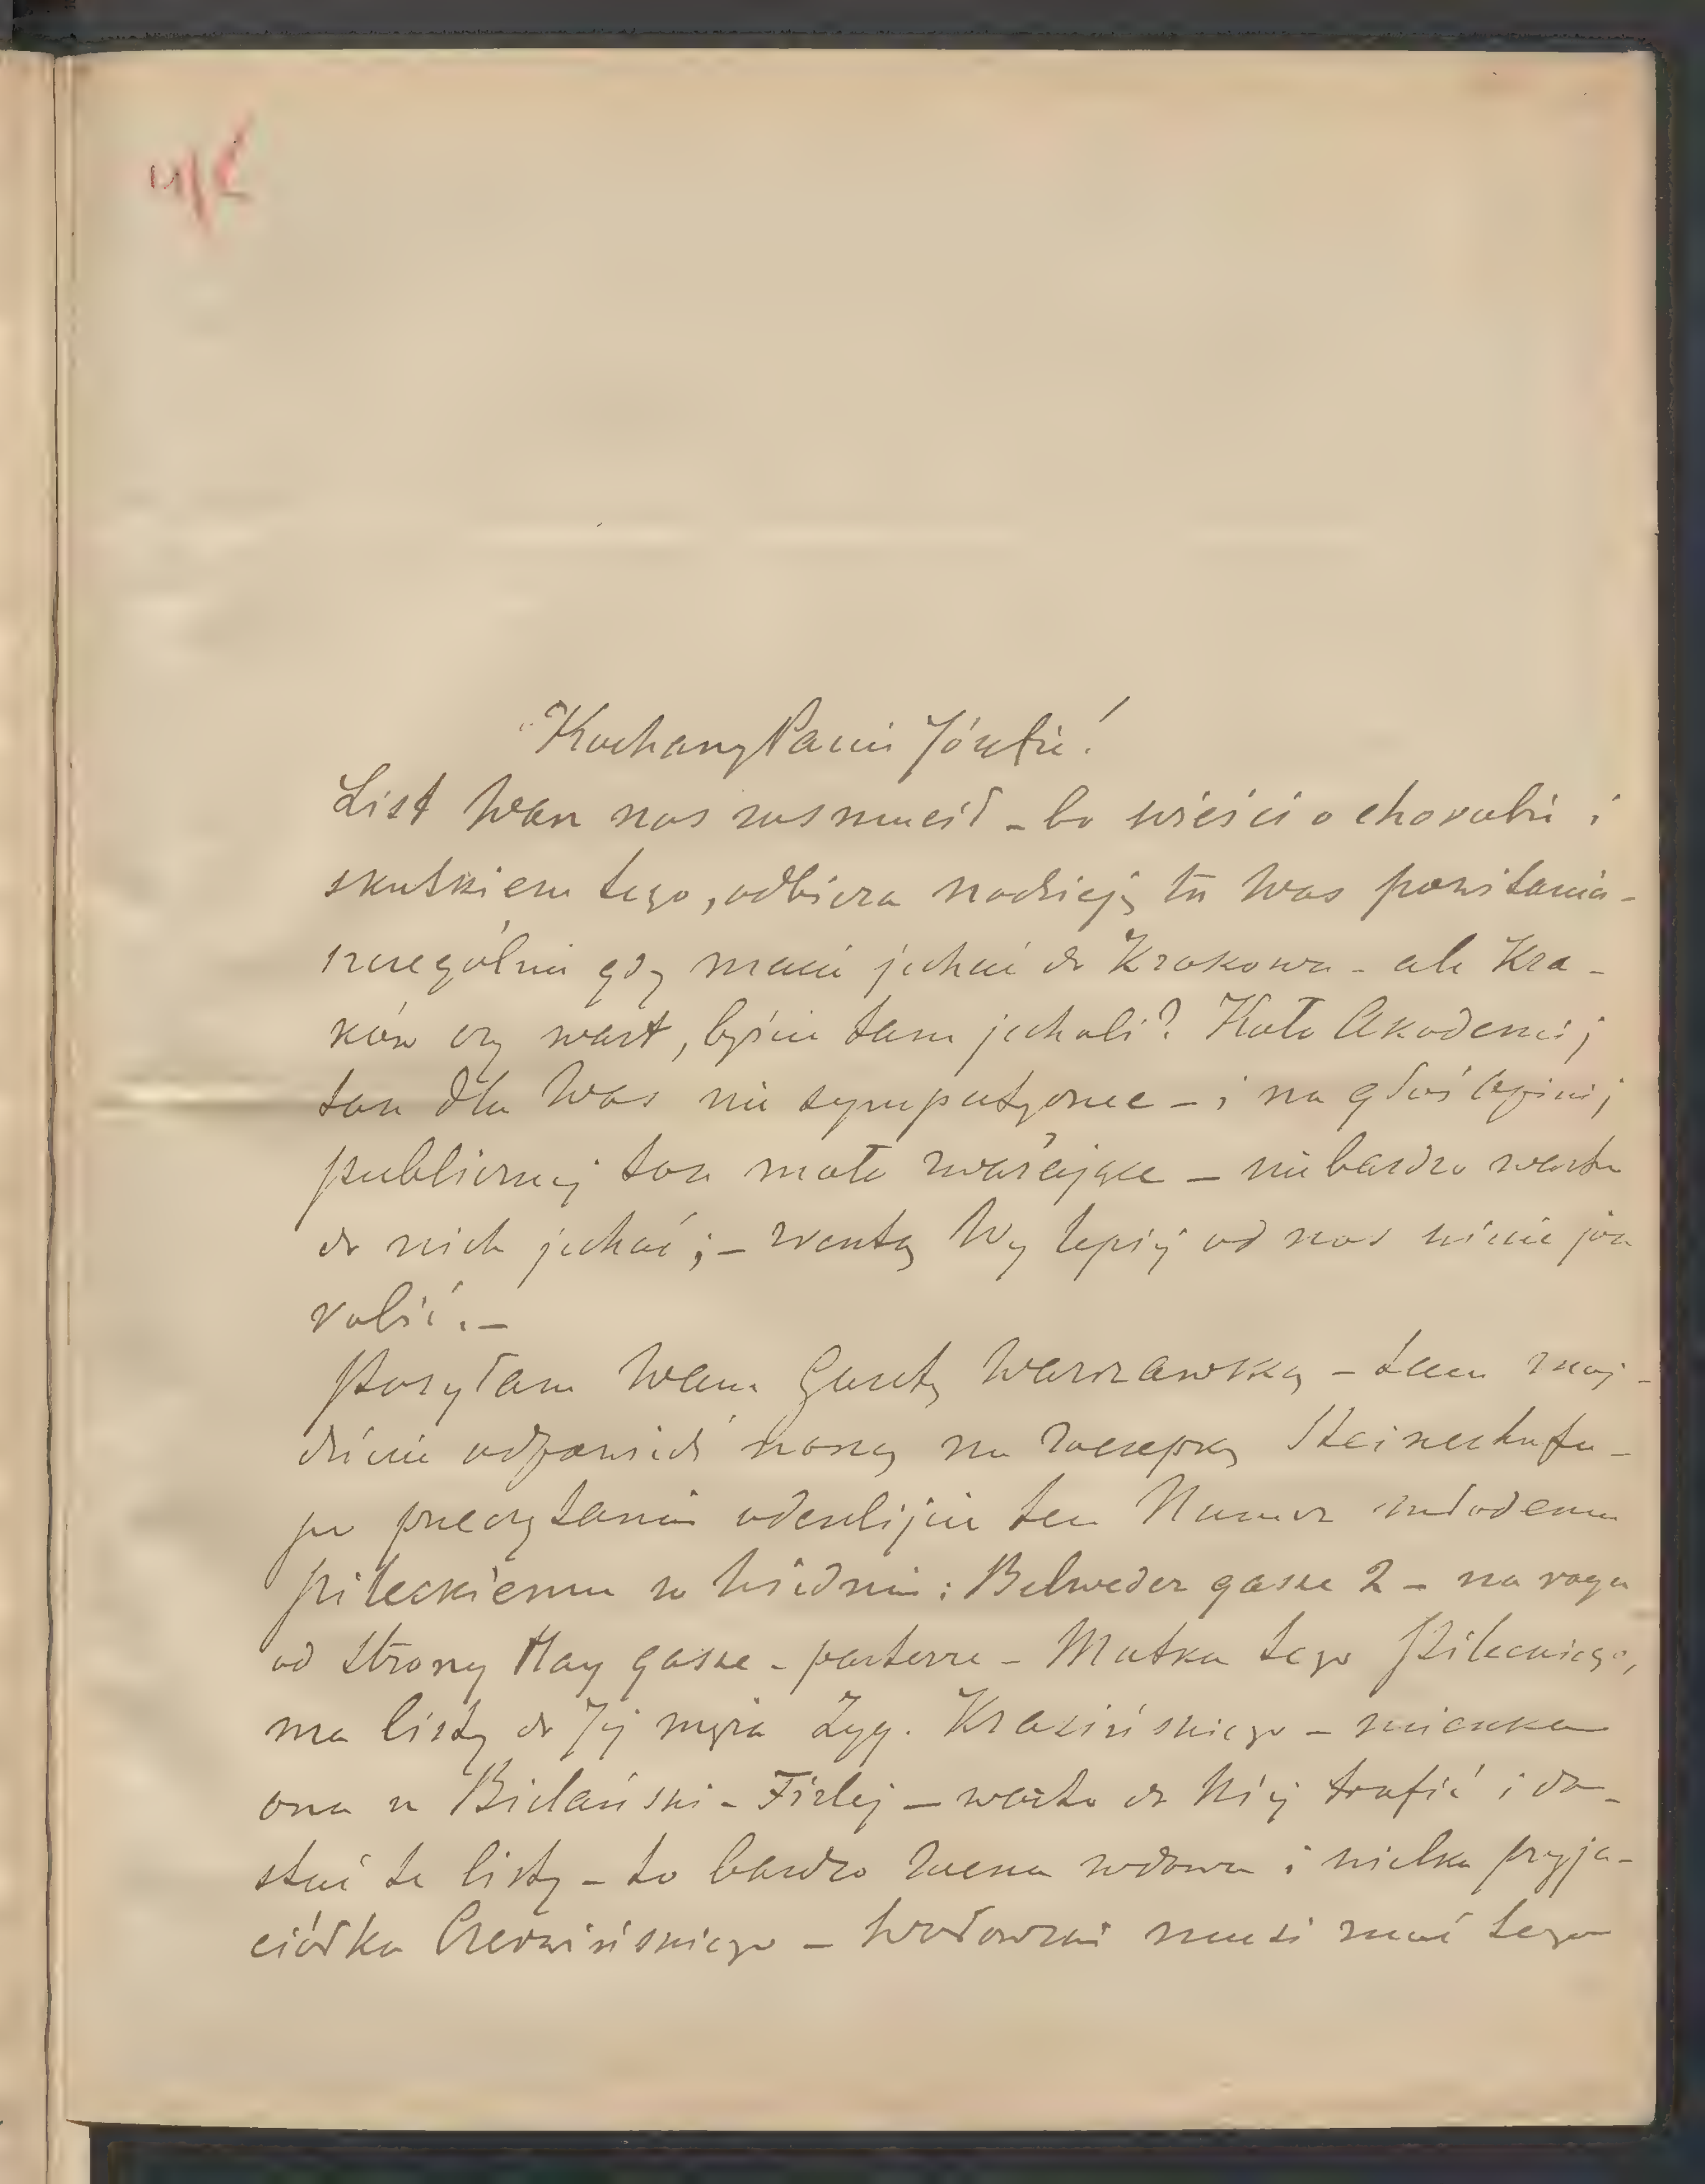 Kochany Panie Józefie!
List Wasz nas zasmucił – bo wieści o chorobie i
skutkiem tego, odbiera nadzieję tu Was powitania –
szczególnie gdy macie jechać do Krakowa – ale Kra-
ków czy wart, byście tam jechali? Koło Akademij
tam dla Was nie sympatyczne – i na głos opinij
publicznej tam mało zważające – nie bardzo warto
do nich jechać; – zresztą Wy lepiej od nas wiecie jak
robić. –
Posyłam Wam Gazetę Warszawską – tam znaj-
dziecie odpowiedź naszą na zaczepkę
po przeczytaniu odeszlijcie ten Numer młodemu
Pileckiemu w Wiedniu: Belweder gasse 2 – na rogu
od strony May gasse – parterre – Matka tego Pileckiego,
ma listy do Jej męża Zyg. Krasińskiego – mieszka
ona w – warto do Niej trafić i do-
stać te listy – to bardzo zacna wdowa i wielka przyja-
ciółka – musi znać tego